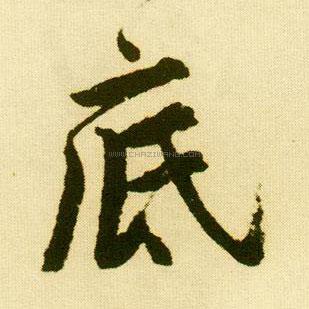 底
WWW.CHAZIWANG.COM